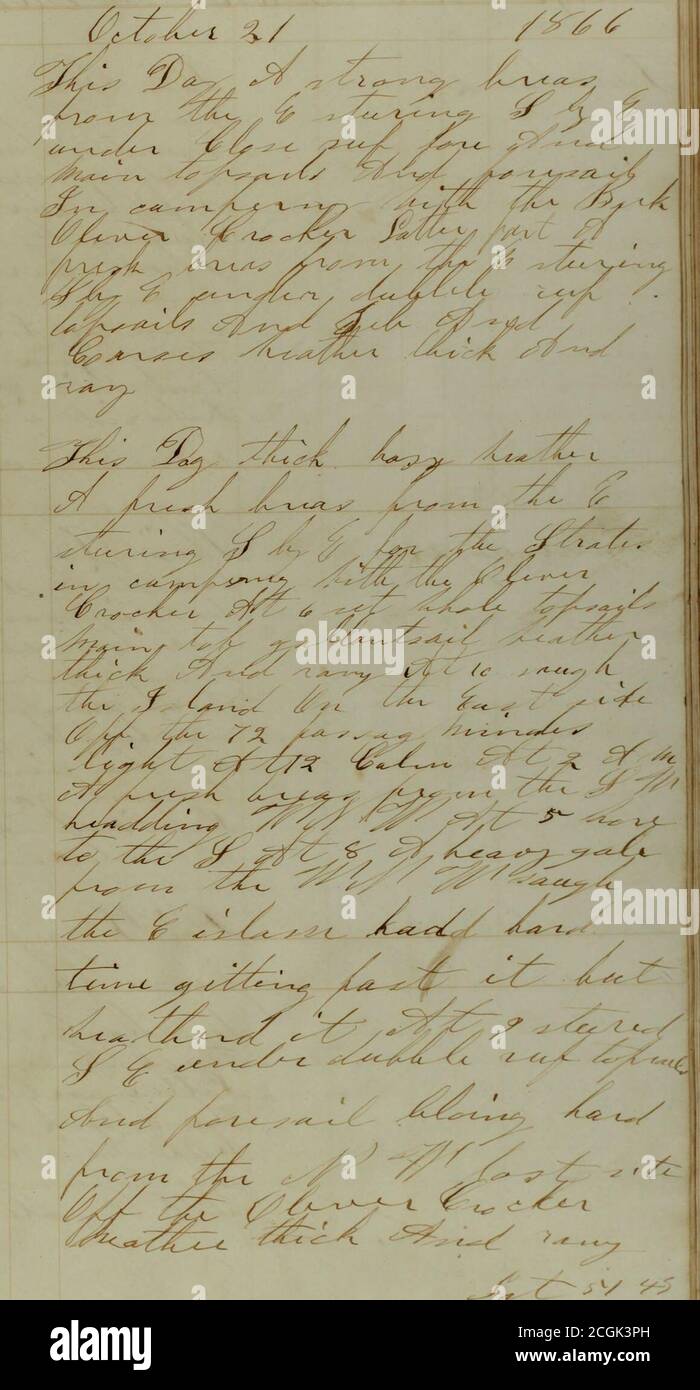 October 21 1866
This Day A strong breas
from the E sturing S by E
under Close reef fore And
main topsails And foresail
In camperny with the Bark
Oliver Crocker Latter part A
fresh breas from the E sturing
S by E under dubble reef
topsails And Jib And
Coarses weather thick And
rany
This Day thick hasy weather
A fresh breas from the E
sturing S by E for the Strates
in camperny with the Oliver
Crocker At 6 set whole topsails
main top gallantsail weather
thick And rany At 10 saugh
the Island On the East side
Off the 72 passag windes
light At 12 Calm At 2 A m
A fresh breas from the S W
headding W by N At 5 wore
to the S At 8 A heavy gale
from the W N W saugh
the E islasm hadd hard
time gitting past it but
weatherd it At 9 steered
S E under dubble reef topsails
And foresail bloing hard
from the N W lost site
Off the Oliver Crocker
Weather thick And rany
Lat 54 45
alamy
Image ID: 2CGK3PH
www.alamy.com